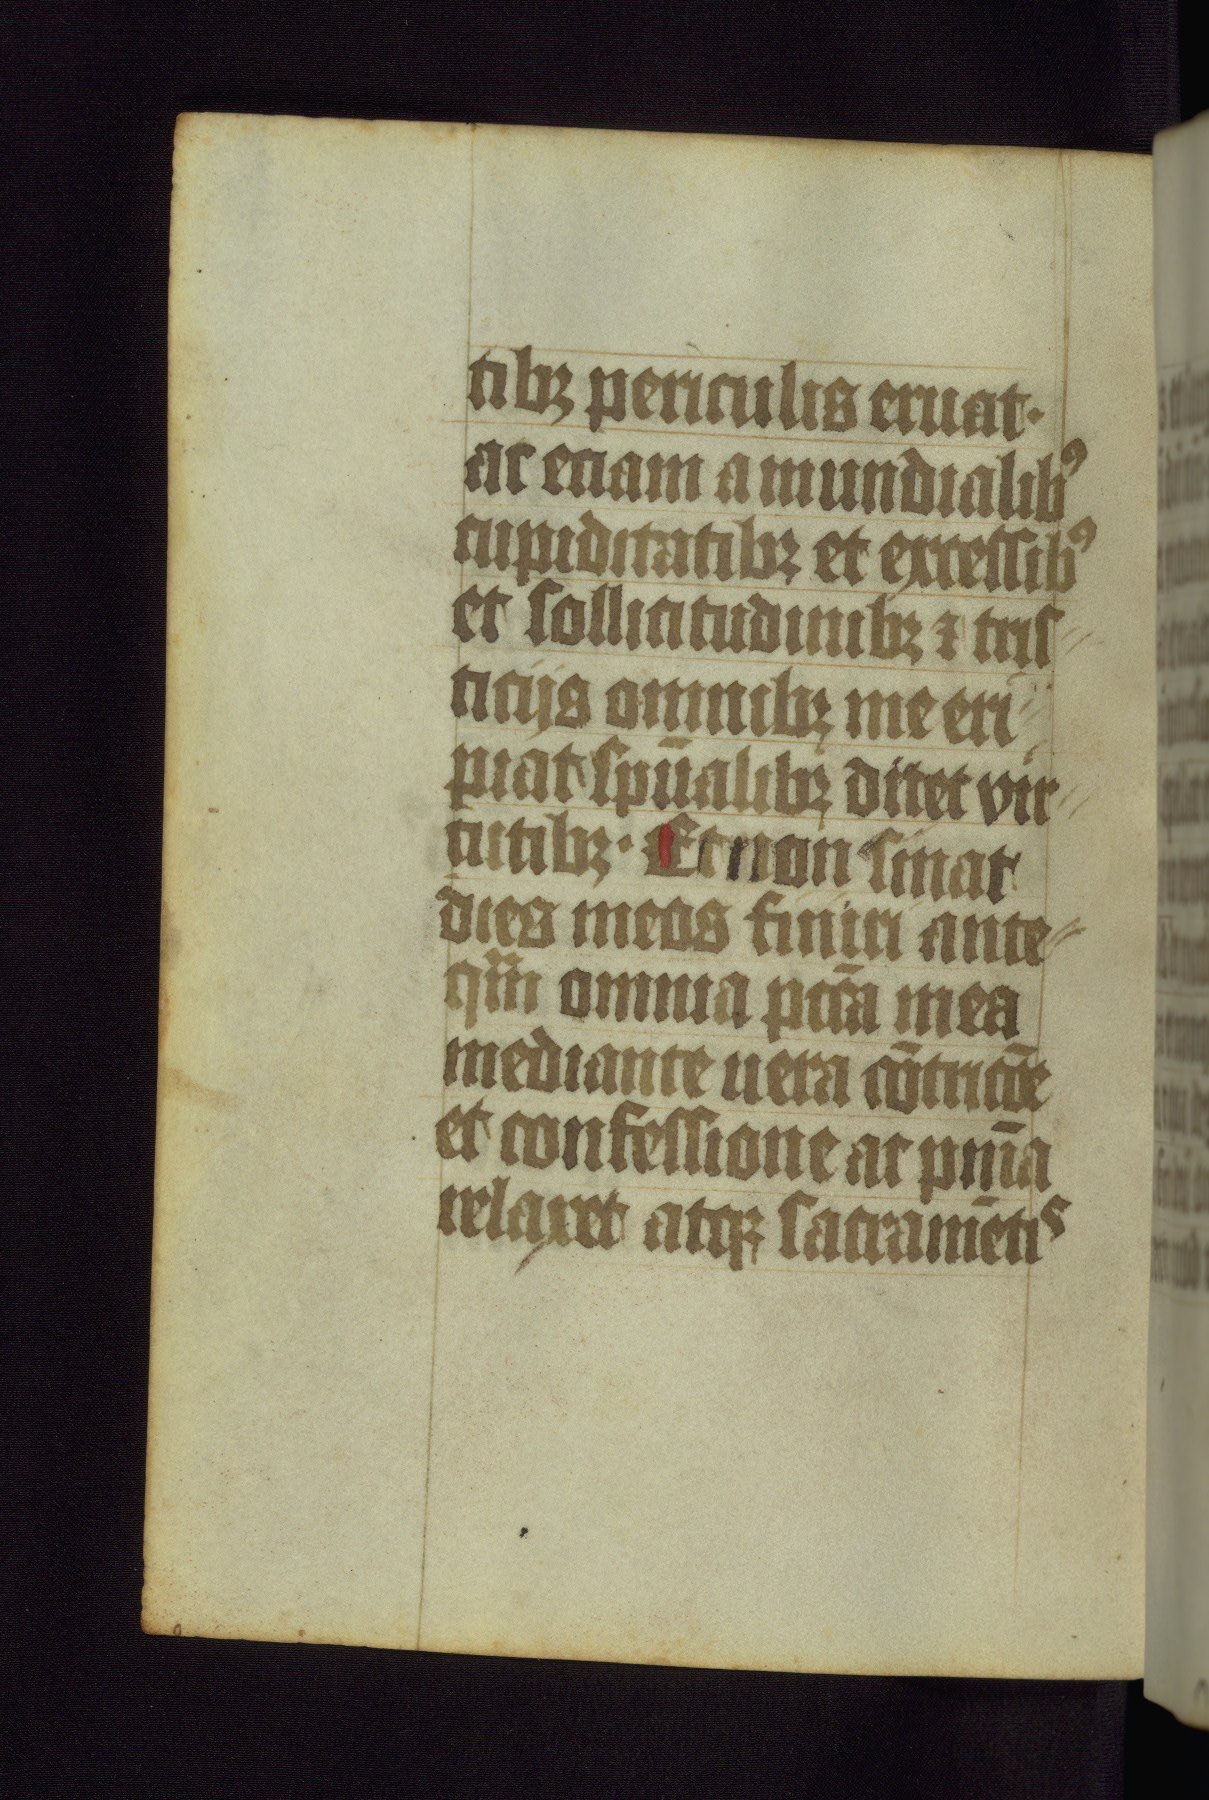 tibꝫ periculis eruat·
ac etiam a mundialibꝰ
cupiditatibꝫ et excessibꝰ
et sollicitudinibꝫ ⁊ tris
ticijs omnibꝫ me eri
piat spūalibꝫ ditet vir
tutibꝫ· Et non sinat
dies meos finiri ante
qm̄ omnia pctā mea
mediante uera cōtricōe
et confessione ac pnīa
relaxet atqꝫ sacramētis